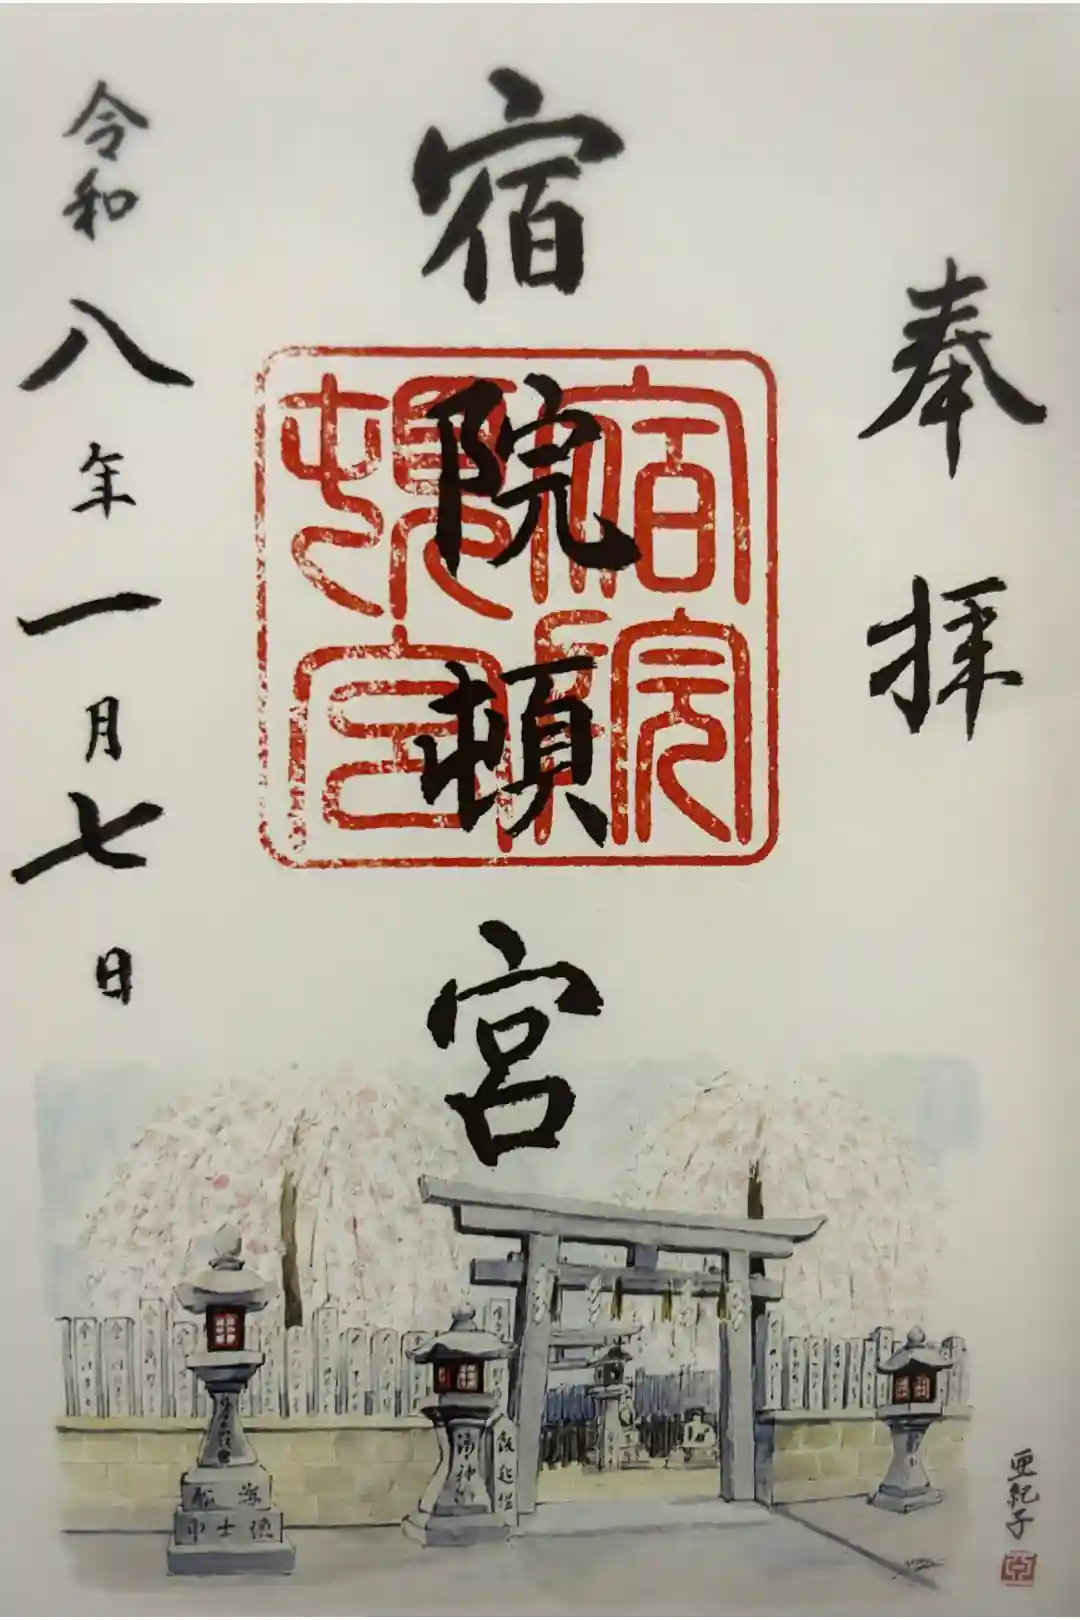 奉拝
宿院頓宮
宿院頓宮
令和八年一月七日
亜紀子